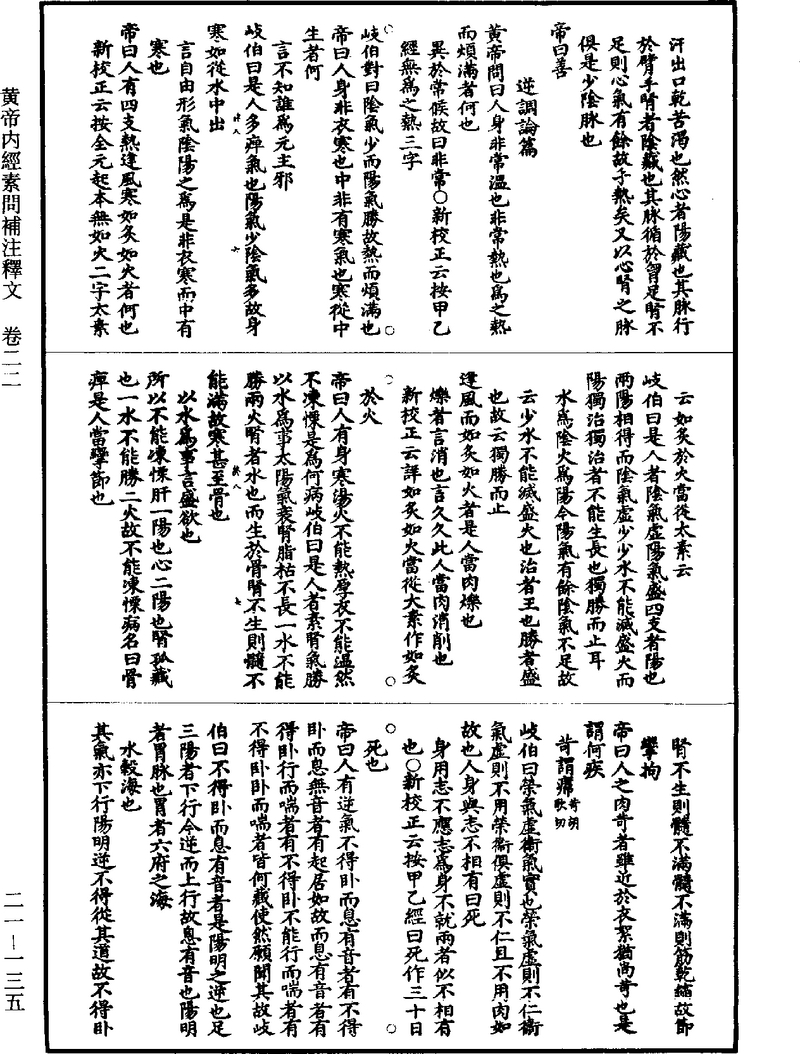 黄帝内經素問補注釋文　卷二二
二一—一三五
汗出口乾苦渴也然心者陽藏也其脉行
於臂手腎者陰藏也其脉循於胷足腎不
足則心氣有餘故手熱矣又以心腎之脉
俱是少陰脉也
帝曰善
逆調論篇
黄帝問曰人身非常溫也非常熱也為之熱
而煩滿者何也
異於常候故曰非常○新校正云按甲乙
經無為之熱三字
岐伯對曰陰氣少而陽氣勝故熱而煩滿也
帝曰人身非衣寒也中非有寒氣也寒從中
生者何
言不知誰為元主邪
岐伯曰是人多痹氣也陽氣少陰氣多故身
寒如從水中出
言自由形氣陰陽之為是非衣寒而中有
寒也
帝曰人有四支熱逢風寒如炙如火者何也
新校正云按全元起本無如火二字太素
云如炙於火當從太素云
岐伯曰是人者陰氣虛陽氣盛四支者陽也
兩陽相得而陰氣虛少少水不能滅盛火而
陽獨治獨治者不能生長也獨勝而止耳
水為陰火為陽今陽氣有餘陰氣不足故
云少水不能滅盛火也治者王也勝者盛
也故云獨勝而止
逢風而如炙如火者是人當肉爍也
爍者言消也言久久此人當肉消削也
新校正云詳如炙如火當從太素作如炙
於火
帝曰人有身寒湯火不能熱厚衣不能溫然
不凍慄是為何病岐伯曰是人者素腎氣勝
以水為事太陽氣衰腎脂枯不長一水不能
勝兩火腎者水也而生於骨腎不生則髓不
能滿故寒甚至骨也
以水為事言盛欲也
所以不能凍慄肝一陽也心二陽也腎孤藏
也一水不能勝二火故不能凍慄病名曰骨
痹是人當攣節也
腎不生則髓不滿髓不滿則筋乾縮故節
攣拘
帝曰人之肉苛者雖近於衣絮猶尚苛也是
謂何疾
苛謂𤸷苛胡歌切
岐伯曰榮氣虛衞氣實也榮氣虛則不仁衞
氣虛則不用榮衞俱虛則不仁且不用肉如
故也人身與志不相有曰死
身用志不應志為身不就兩者似不相有
也○新校正云按甲乙經曰死作三十日
死也
帝曰人有逆氣不得卧而息有音者有不得
卧而息無音者有起居如故而息有音者有
得卧行而喘者有不得卧不能行而喘者有
不得卧卧而喘者皆何藏使然願聞其故岐
伯曰不得卧而息有音者是陽明之逆也足
三陽者下行今逆而上行故息有音也陽明
者胃脉也胃者六府之海
水穀海也
其氣亦下行陽明逆不得從其道故不得卧